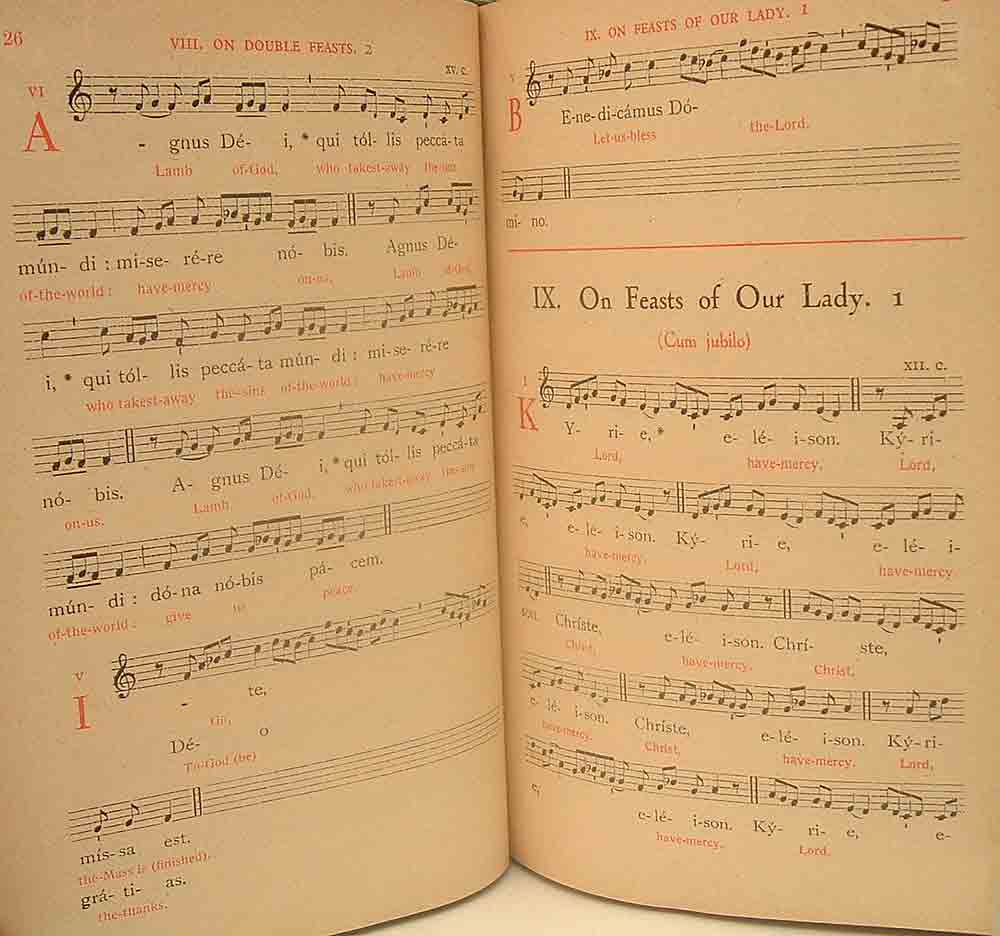 26
VIII. ON DOUBLE FEASTS. 2
XV. C.
VI
A - gnus Dé- i, * qui tól- lis peccá-ta
Lamb of-God, who takest-away the-sins
mún- di : mi-se- ré-re nó- bis. Agnus Dé-
of-the-world : have-mercy on-us, Lamb of-God,
i, * qui tól- lis peccá-ta mún- di : mi-se- ré-re
who takest-away the-sins of-the-world : have-mercy
nó- bis. A- gnus Dé- i, * qui tól- lis peccáta
on-us. Lamb of-God, who takest-away the-sins
mún- di : dó-na nó-bis pá- cem.
of-the-world : give to peace.
V
I - te,
Go,
Dé- o
To-God (be)
mís-sa est.
the-Mass is (finished).
grá- ti- as.
the-thanks.
IX. ON FEASTS OF OUR LADY. 1
V
B E-ne-di-cámus Dó-
Let-us-bless the-Lord.
mi- no.
IX. On Feasts of Our Lady. 1
(Cum jubilo)
XII. C.
I
K Y- ri- e, * e- lé- i-son. Ký- ri-
Lord, have-mercy. Lord,
e, e- lé- i-son. Ký- ri- e, e- lé- i-
have-mercy. Lord, have-mercy.
son. Chríste, e-lé- i-son. Chrí- ste,
Christ, have-mercy. Christ,
e- lé- i-son. Chríste, e-lé- i-son. Ký-ri-
have-mercy. Christ, have-mercy. Lord,
e, e-lé- i-son. Ký- ri- e, e-
have-mercy. Lord.